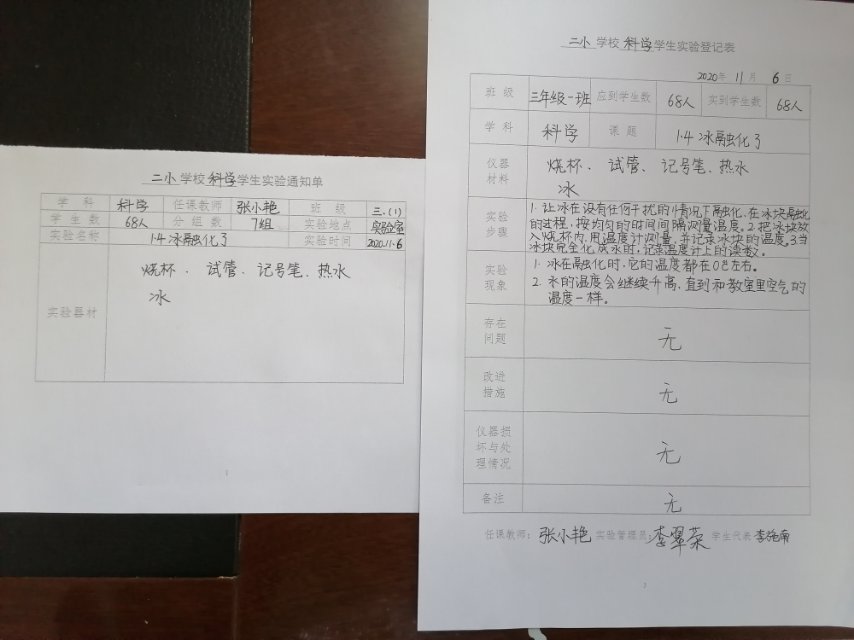 二小 学校 科学 学生实验通知单
学 科 科学 任课教师 张小艳 班 级 三.(1)
学 生 数 68人 分 组 数 7组 实验地点 实验室
实验名称 1.4冰融化了 实验时间 2020.11.6
实验器材
烧杯、试管、记号笔、热水
冰
二小 学校 科学 学生实验登记表
2020年 11月 6日
班 级 三年级一班 应到学生数 68人 实到学生数 68人
学 科 科学 课 题 1.4 冰融化了
仪器
材料
烧杯、试管、记号笔、热水
冰
实验
步骤
1.让冰在没有任何干扰的情况下融化,在冰块融化
的过程,按均匀的时间间隔测量温度。2.把冰块放
入烧杯内,用温度计测量,并记录冰块的温度。3.当
冰块完全化成水时,记录温度计上的读数。
实验
现象
1.冰在融化时,它的温度都在0℃左右。
2.水的温度会继续升高,直到和教室里空气的
温度一样。
存在
问题
无
改进
措施
无
仪器损
坏与处
理情况
无
备注 无
任课教师:张小艳 实验管理员:李翠荣 学生代表